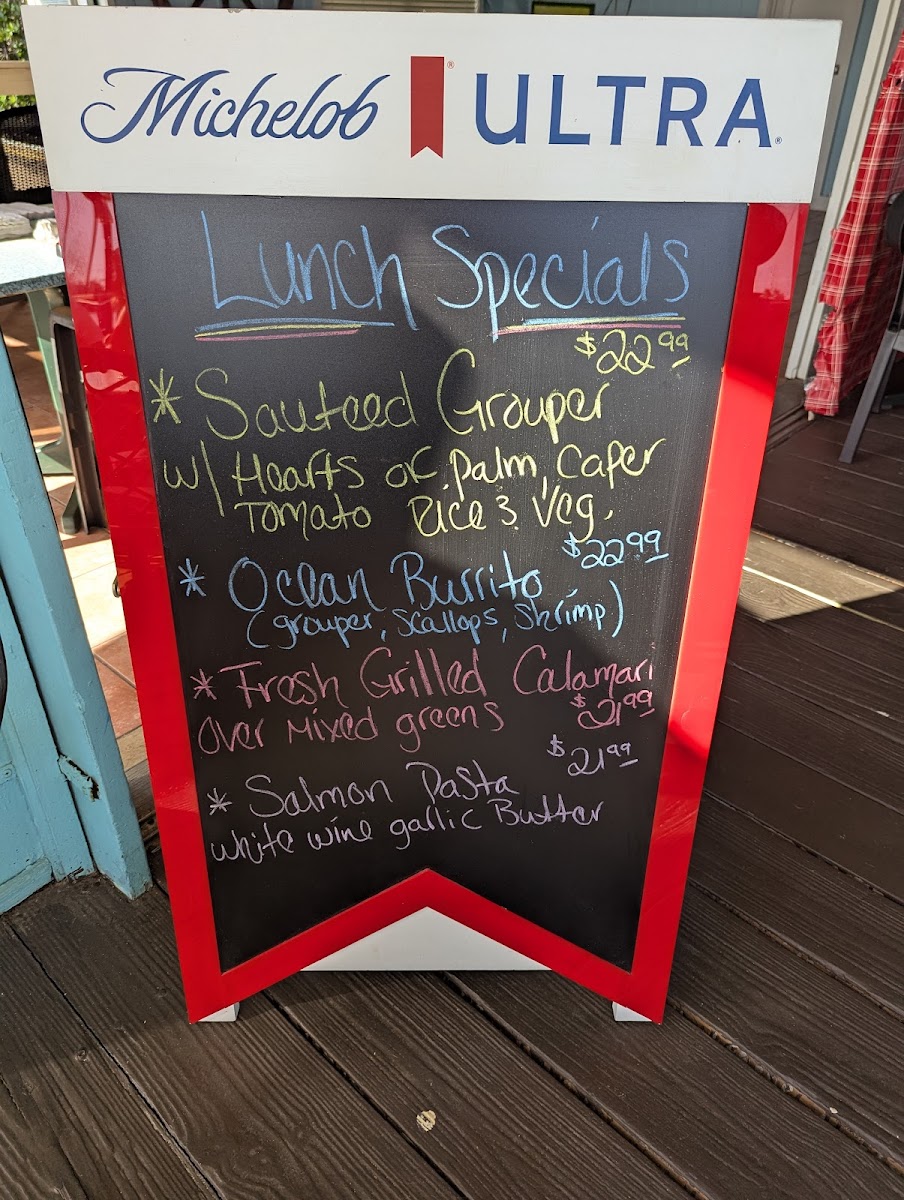 Michelob ULTRA
Lunch Specials
$22.99
* Sauteed Grouper
w/ Hearts of palm, Caper
Tomato Rice & Veg.
$22.99
* Ocean Burrito
(grouper, scallops, shrimp)
* Fresh Grilled Calamari
over mixed greens $21.99
$21.99
* Salmon Pasta
white wine garlic Butter